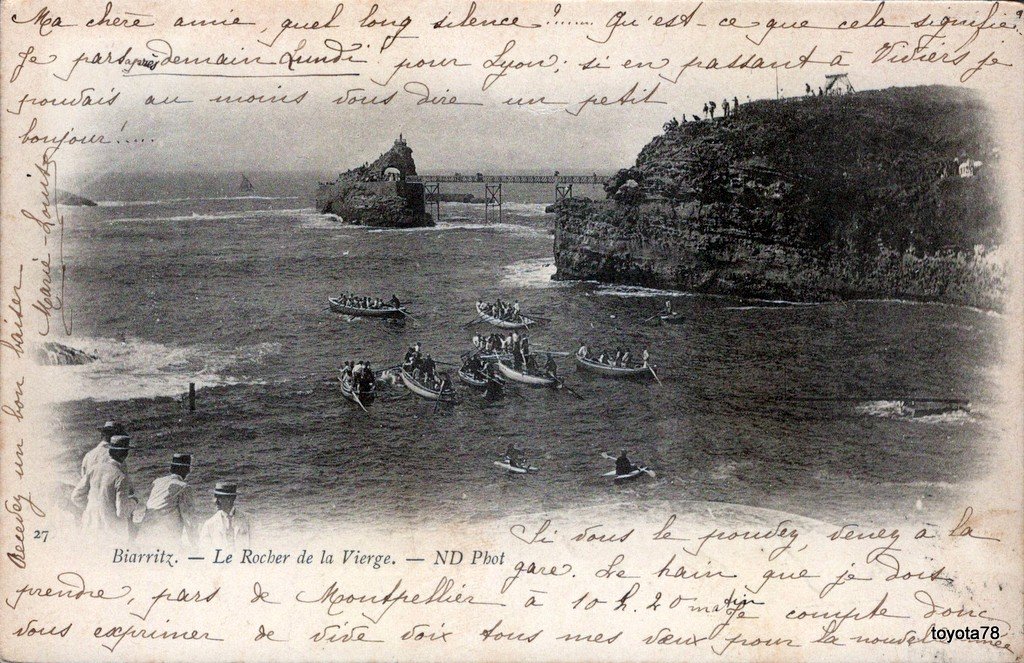 Ma chère amie, quel long silence ?...... Qu'est-ce que cela signifie?
Je pars après demain Lundi pour Lyon; si en passant à Viviers je
pouvais au moins vous dire un petit
bonjour!.....
27
Biarritz. — Le Rocher de la Vierge. — ND Phot
Si vous le pouvez, venez à la
gare. Le train que je dois
prendre, pars de Montpellier à 10 h. 20 matin je compte donc
vous exprimer de vive voix tous mes vœux pour la nouvelle année
un bon baiser
Marie-Louise
toyota78